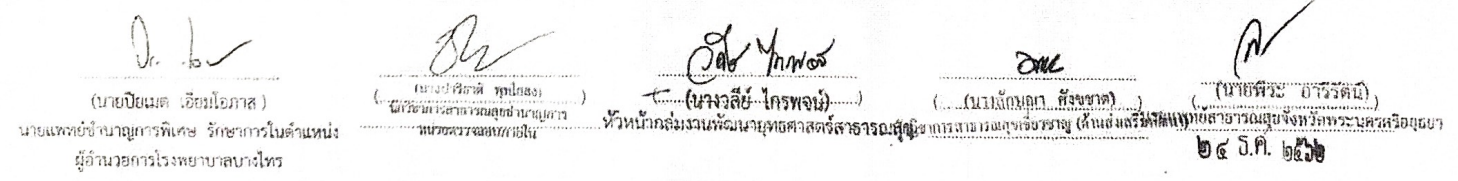 (นายปิยเมต เอี่ยมโอภาส)
นายแพทย์ชำนาญการพิเศษ รักษาการในตำแหน่ง
ผู้อำนวยการโรงพยาบาลบางไทร
นักวิชาการสาธารณสุขชำนาญการ
หน่วยตรวจสอบภายใน
(นางวลีย์ ไกรพจน์)
หัวหน้ากลุ่มงานพัฒนายุทธศาสตร์สาธารณสุข
สังขชาต)
วิชาการสาธารณสุขเชี่ยวชาญ (ด้านส่งเสริม
(นายพีระ อารีรัตน์)
แพทย์สาธารณสุขจังหวัดพระนครศรีอยุธยา
๒๔ ธ.ค. ๒๕๖๒